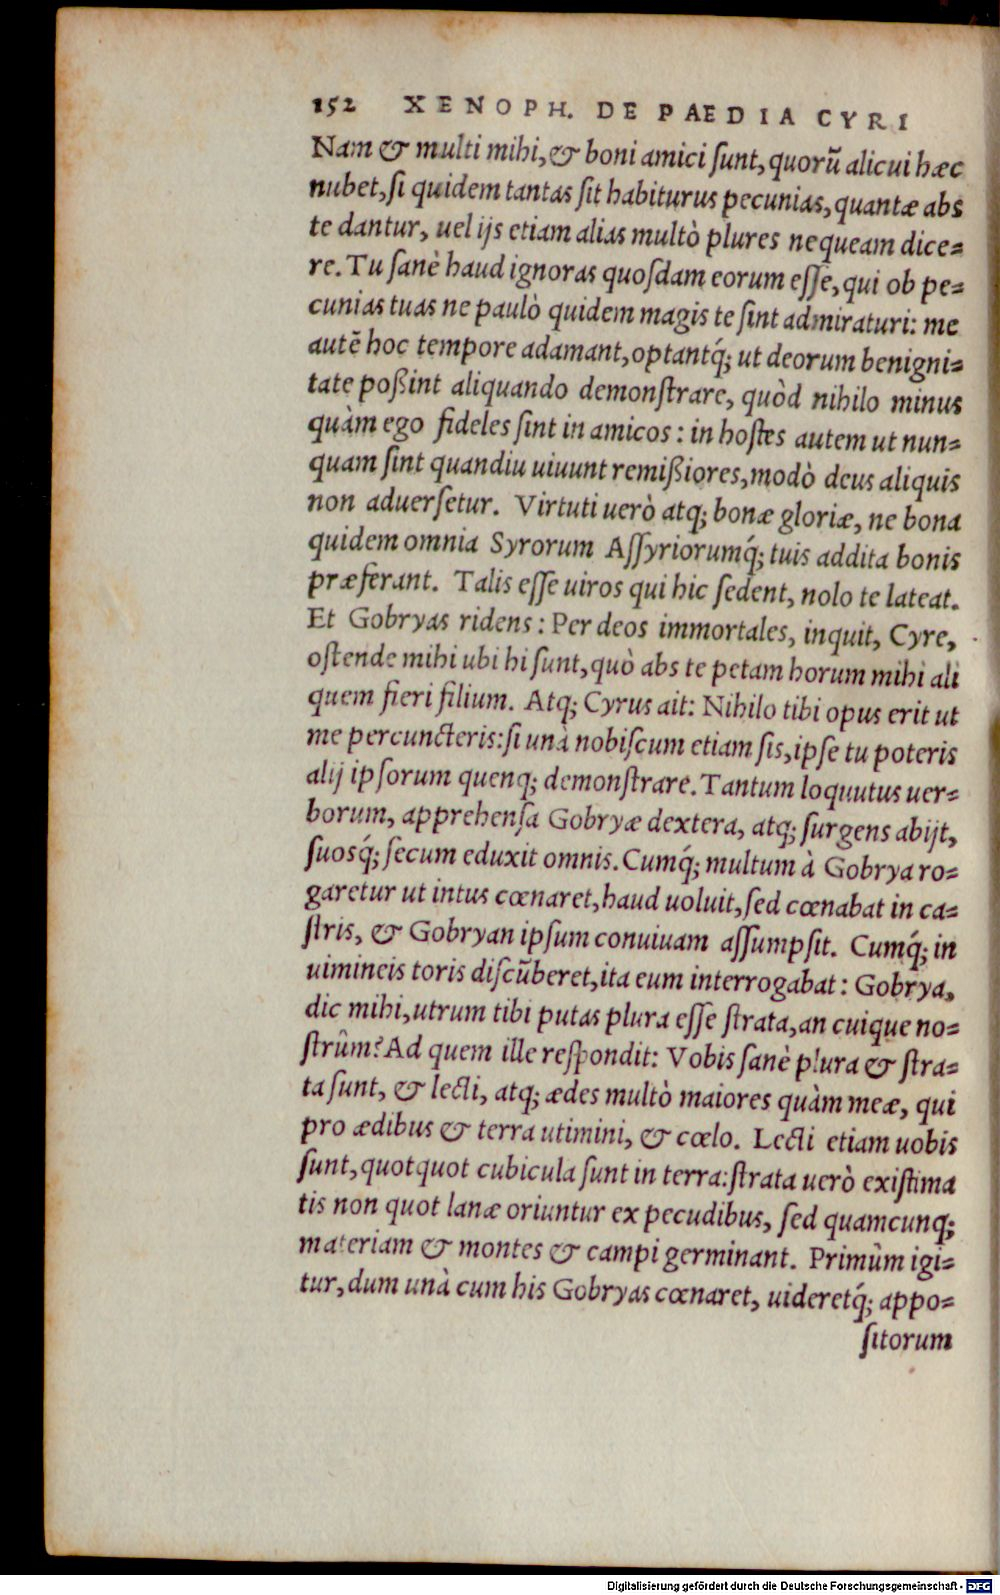 152 XENOPH. DE PAEDIA CYRI
Nam & multi mihi, & boni amici ſunt, quorũ alicui hæc
nubet, ſi quidem tantas ſit habiturus pecunias, quantæ abs
te dantur, uel ijs etiam alias multò plures nequeam dice⸗
re. Tu ſanè haud ignoras quoſdam eorum eſſe, qui ob pe⸗
cunias tuas ne paulò quidem magis te ſint admiraturi: me
autẽ hoc tempore adamant, optantq́; ut deorum benigni⸗
tate poßint aliquando demonſtrare, quòd nihilo minus
quàm ego fideles ſint in amicos: in hoſtes autem ut nun⸗
quam ſint quandiu uiuunt remißiores, modò deus aliquis
non aduerſetur. Virtuti uerò atq; bonæ gloriæ, ne bona
quidem omnia Syrorum Aſſyriorumq́; tuis addita bonis
præferant. Talis eſſe uiros qui hic ſedent, nolo te lateat.
Et Gobryas ridens: Per deos immortales, inquit, Cyre,
oſtende mihi ubi hi ſunt, quò abs te petam horum mihi ali
quem fieri filium. Atq; Cyrus ait: Nihilo tibi opus erit ut
me percuncteris: ſi unà nobiſcum etiam ſis, ipſe tu poteris
alij ipſorum quenq; demonſtrare. Tantum loquutus uer⸗
borum, apprehenſa Gobryæ dextera, atq; ſurgens abijt,
ſuosq́; ſecum eduxit omnis. Cumq́; multum à Gobrya ro⸗
garetur ut intus cœnaret, haud uoluit, ſed cœnabat in ca⸗
ſtris, & Gobryan ipſum conuiuam aſſumpſit. Cumq́; in
uimineis toris diſcũberet, ita eum interrogabat: Gobrya,
dic mihi, utrum tibi putas plura eſſe ſtrata, an cuique no⸗
ſtrûm? Ad quem ille reſpondit: Vobis ſanè plura & ſtra⸗
ta ſunt, & lecti, atq; ædes multò maiores quàm meæ, qui
pro ædibus & terra utimini, & cœlo. Lecti etiam uobis
ſunt, quotquot cubicula ſunt in terra: ſtrata uerò exiſtima
tis non quot lanæ oriuntur ex pecudibus, ſed quamcunq;
materiam & montes & campi germinant. Primùm igi⸗
tur, dum unà cum his Gobryas cœnaret, uideretq́; appo⸗
ſitorum
Digitalisierung gefördert durch die Deutsche Forschungsgemeinschaft - DFG